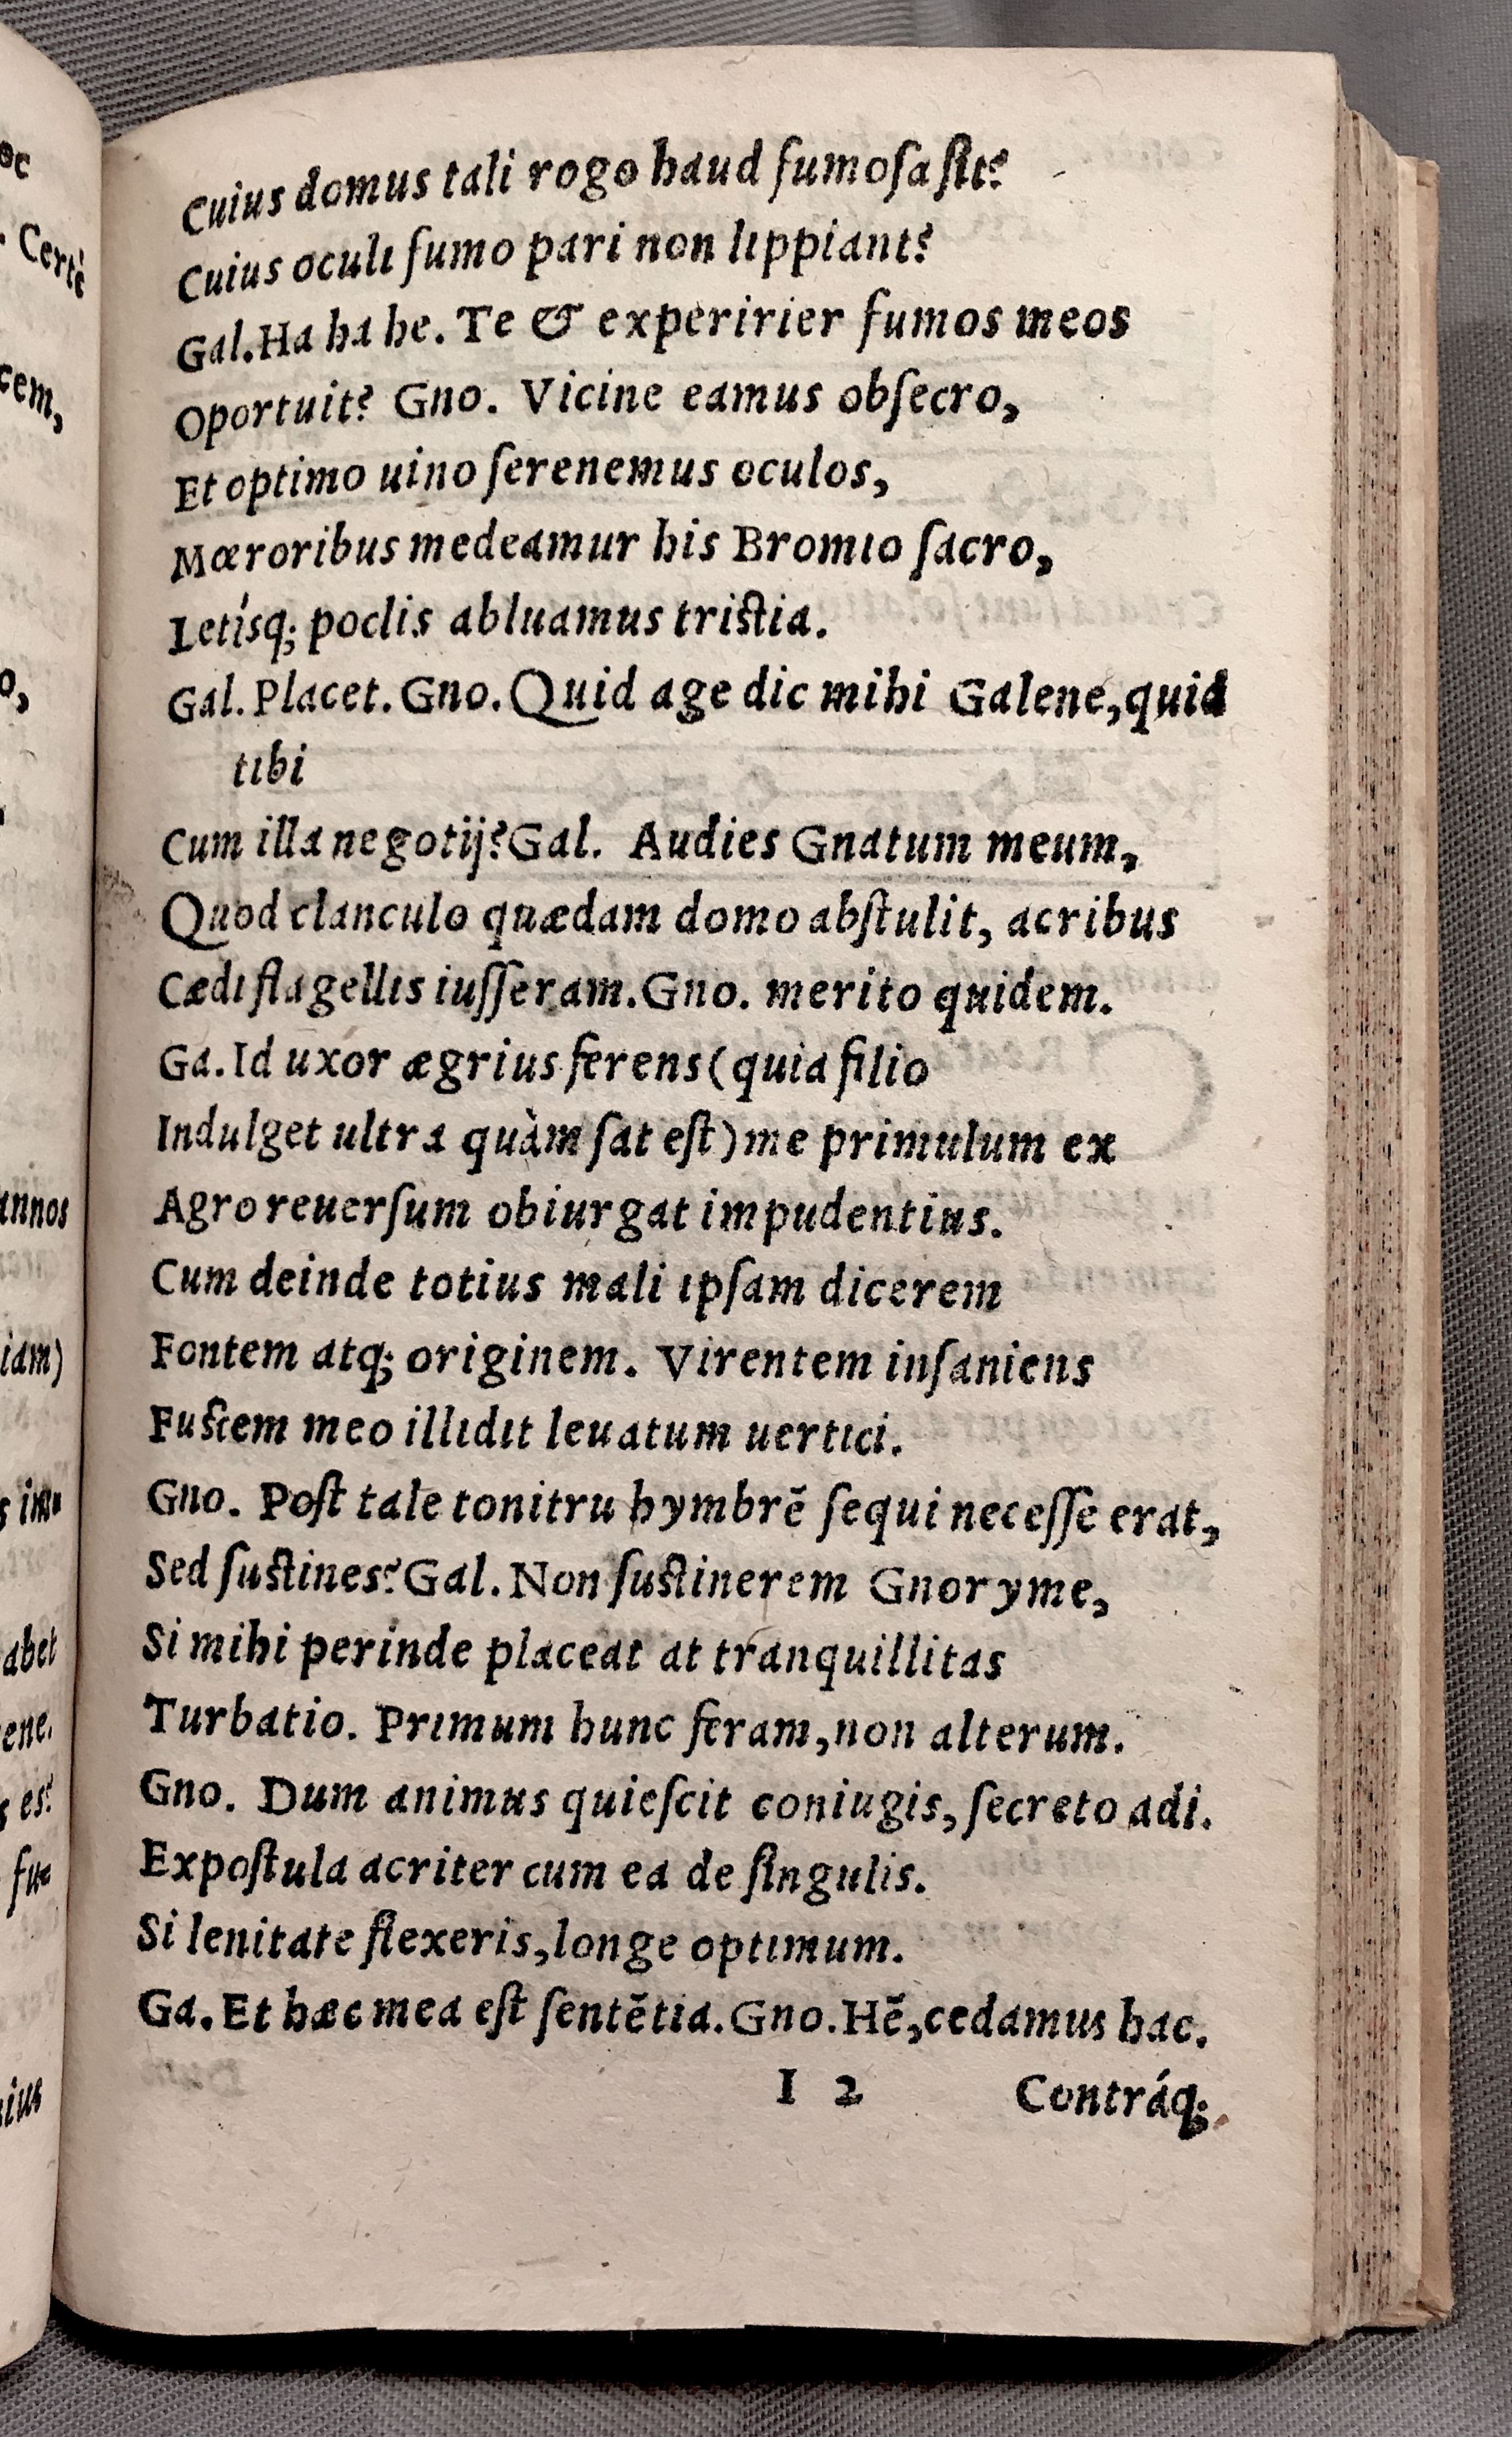 Cuius domus tali rogo haud fumoſa ſit?
Cuius oculi fumo pari non lippiant?
Gal. Ha ha he. Te & experirier fumos meos
Oportuit? Gno. Vicine eamus obſecro,
Et optimo uino ſerenemus oculos,
Mœroribus medeamur his Bromio ſacro,
Letísq; poclis abluamus triſtia.
Gal. Placet. Gno. Quid age dic mihi Galene, quid
tibi
Cum illa negotij? Gal. Audies Gnatum meum,
Quod clanculo quædam domo abſtulit, acribus
Cædi flagellis iuſſeram. Gno. merito quidem.
Ga. Id uxor ægrius ferens (quia filio
Indulget ultra quàm ſat eſt) me primulum ex
Agro reuerſum obiurgat impudentius.
Cum deinde totius mali ipſam dicerem
Fontem atq; originem. Virentem inſaniens
Fuſtem meo illidit leuatum uertici.
Gno. Poſt tale tonitru hymbrē ſequi neceſſe erat,
Sed ſuſtines? Gal. Non ſuſtinerem Gnoryme,
Si mihi perinde placeat at tranquillitas
Turbatio. Primum hunc feram, non alterum.
Gno. Dum animus quieſcit coniugis, ſecreto adi.
Expoſtula acriter cum ea de ſingulis.
Si lenitate flexeris, longe optimum.
Ga. Et hæc mea eſt ſentētia. Gno. Hē, cedamus hac.
I 2 Contráq;